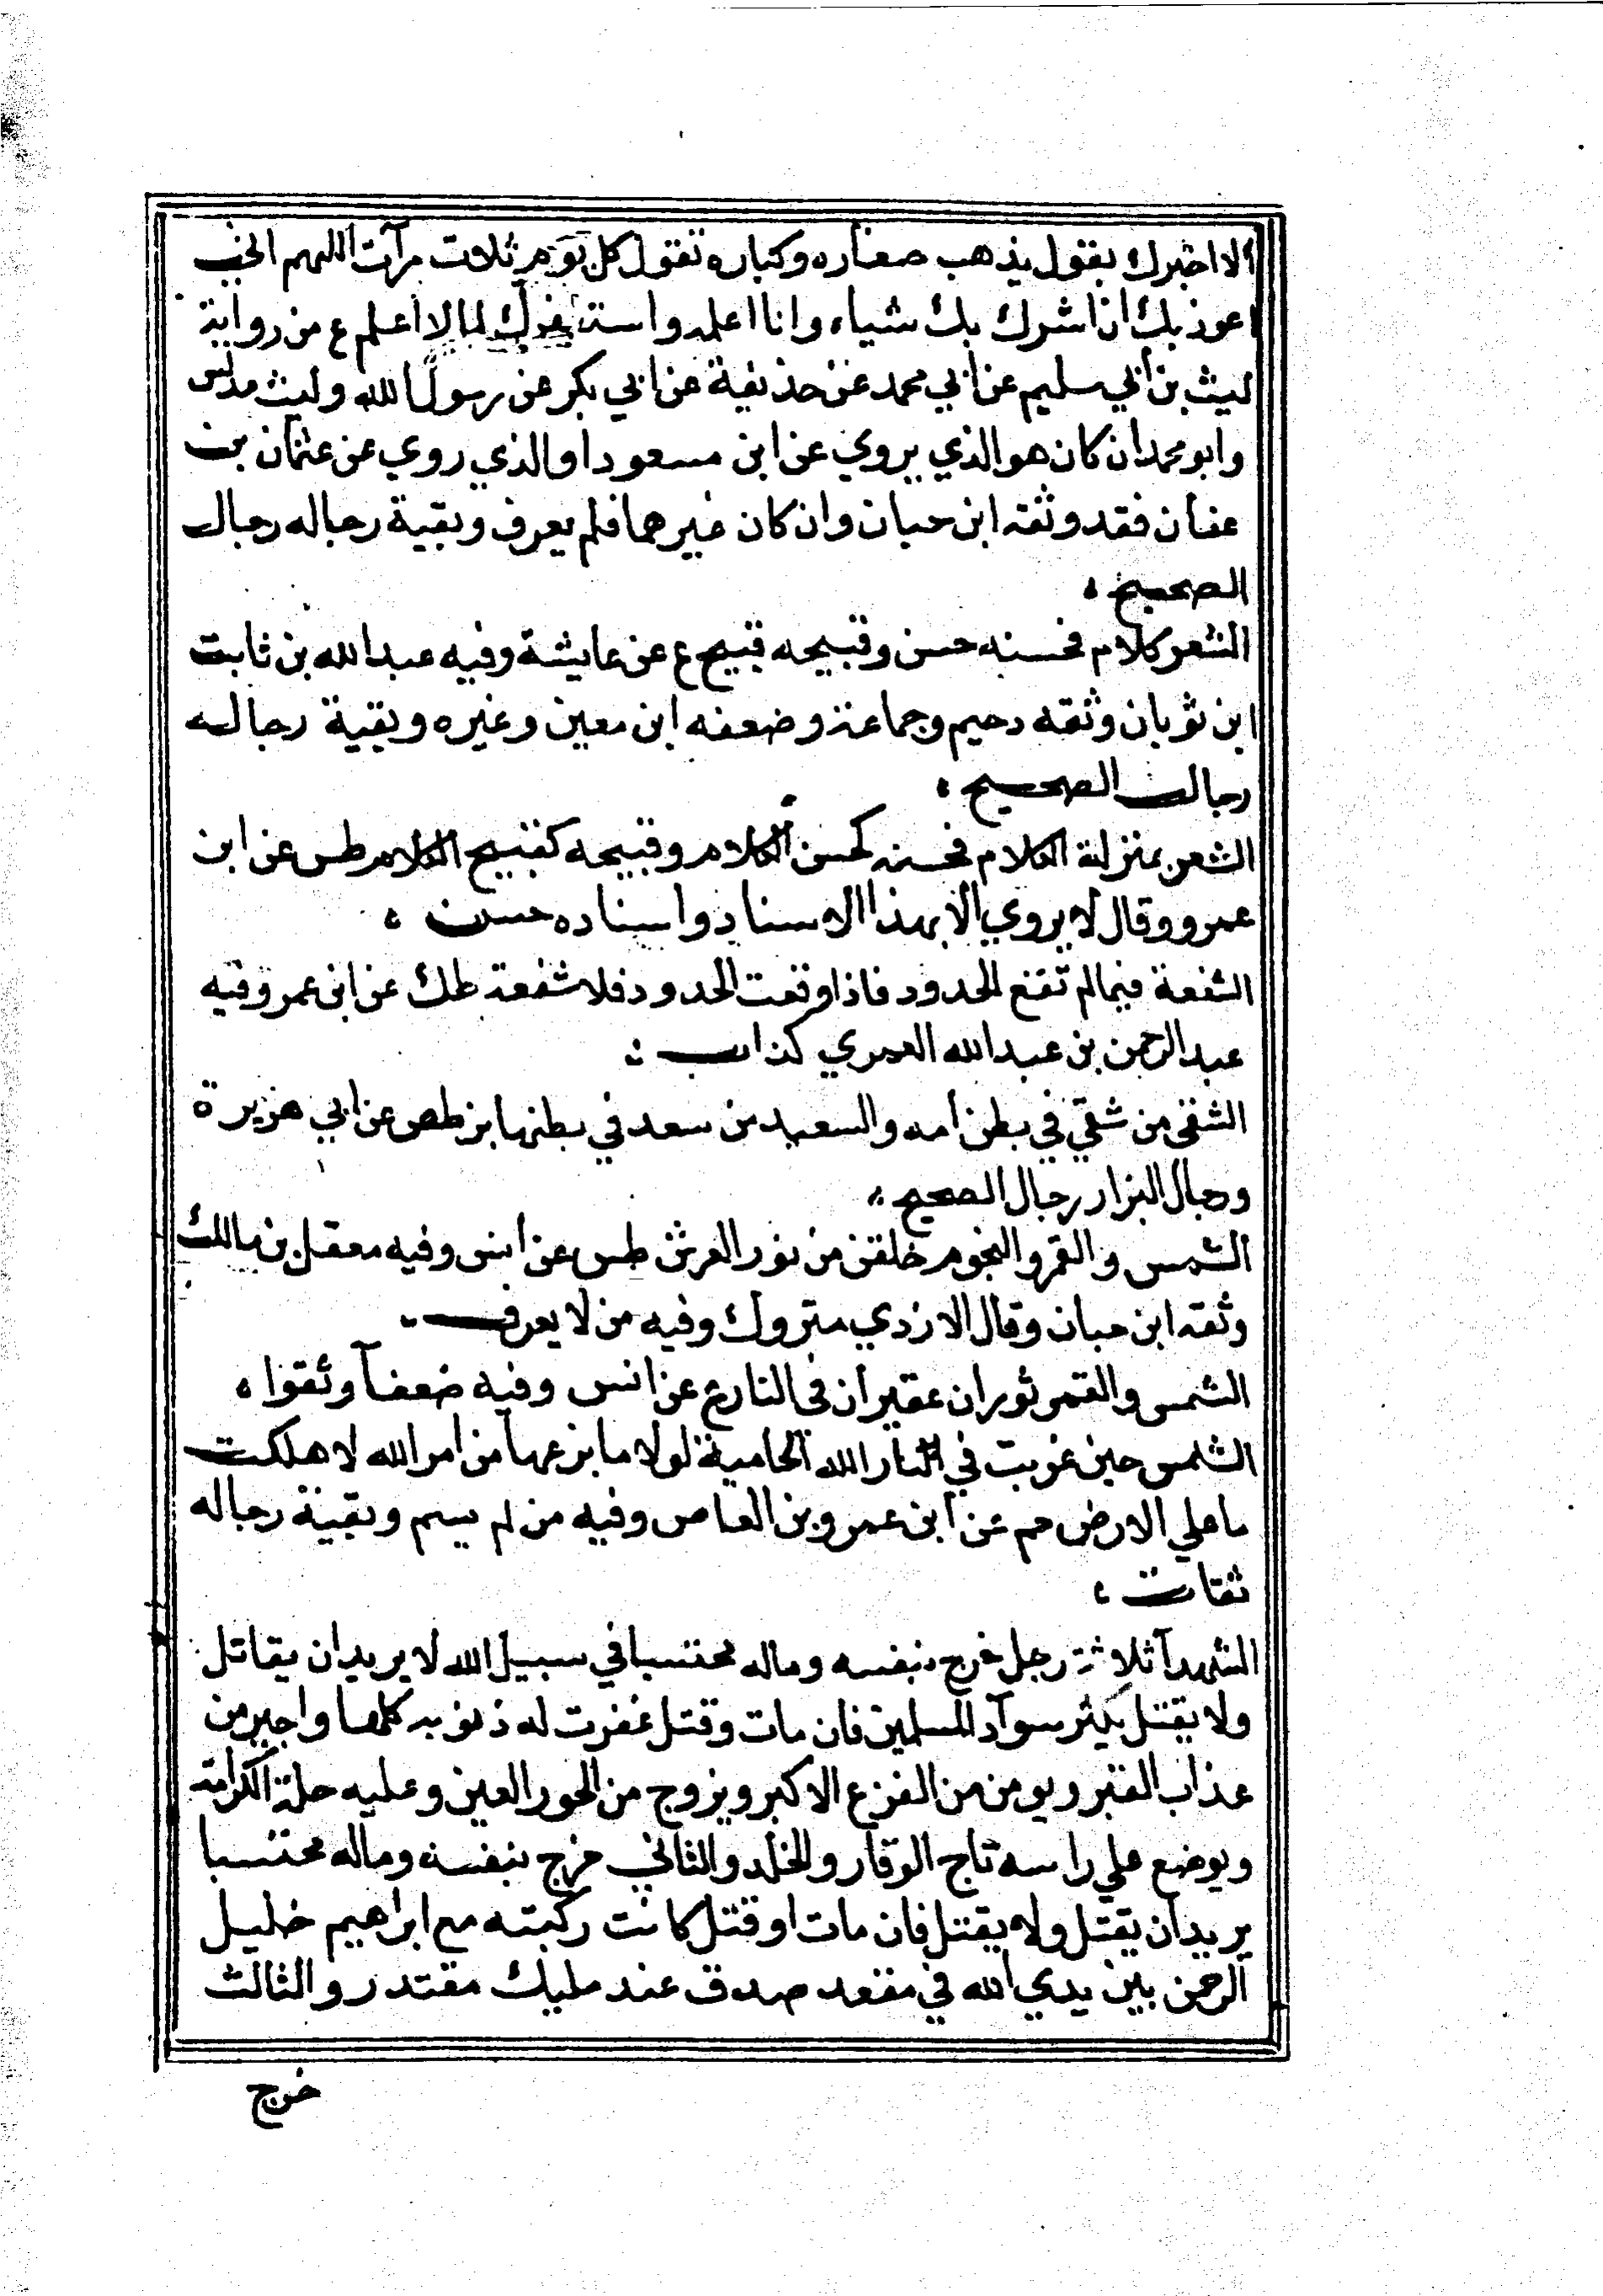 الا اخبرك بقول يذهب صغاره وكباره تقول كل يوم ثلات مرآت اللهم اني
اعوذ بك ان اشرك بك شياء وانا اعلمه واستغفرك لما لا اعلم ع من رواية
ليث بن أبي سليم عن ابي محمد عن حذيفة عن ابي بكر عن رسول الله وليث مدلس
وابو محمد ان كان هو الذي يروي عن ابن مسعود او الذي روي عن عثمان بن
عفان فقد وثقه ابن حبان وان كان غيرهما فلم يعرف وبقية رجاله رجال
الصحيح ،
الشعر كلام فحسنه حسن وقبيحه قبيح ع عن عايشة وفيه عبد الله بن ثابت
ابن ثوبان وثقه دحيم وجماعة وضعفه ابن معين وغيره وبقية رجاله
رجال الصحيح ،
الشعر بمنزلة الكلام فحسنه كحسن الكلام وقبيحه كقبيح الكلام طس عن ابن
عمرو وقال لا يروي الا بهذا الاسناد واسناده حسن ،
الشفعة فيما لم تقع الحدود فاذا وقعت الحدود فلا شفعة طك عن ابن عمر وفيه
عبد الرحمن بن عبد الله العمري كذاب :
الشقى من شقي في بطن أمه والسعيد من سعد في بطنها بز طص عن ابي هريرة
ورجال البزار رجال الصحيح ،،
الشمس والقمر والنجوم خلقن من نور العرش طس عن أنس وفيه معقل بن مالك
وثقه ابن حبان وقال الازدي متروك وفيه من لا يعرف
الشمس والقمر ثوران عقيران فى النار ع عن انس وفيه ضعفآ وثقوا ،
الشمس حين غربت في النار الله الحامية لولا ما يزعها من امر الله لاهلكت
ما علي الارض حم عن ابن عمرو بن العاص وفيه من لم يسم وبقية رجاله
ثقات ،
الشهدآ ثلاثة رجل خرج بنفسه وماله محتسبا في سبيل الله لا يريد ان يقاتل
ولا يقتل يكثر سوآد المسلمين فان مات وقتل غفرت له ذنوبه كلها واجير من
عذاب القبر ويومن من الفزع الاكبر ويزوج من الحور العين وعليه حلة الكرامة
ويوضع علي راسه تاج الوقار والخلد والثاني خرج بنفسه وماله محتسبا
يريد ان يقتل ولا يقتل فان مات او قتل كانت ركبته مع ابراهيم خليل
الرحمن بين يدي الله في مقعد صدق عند مليك مقتدر والثالث
خرج